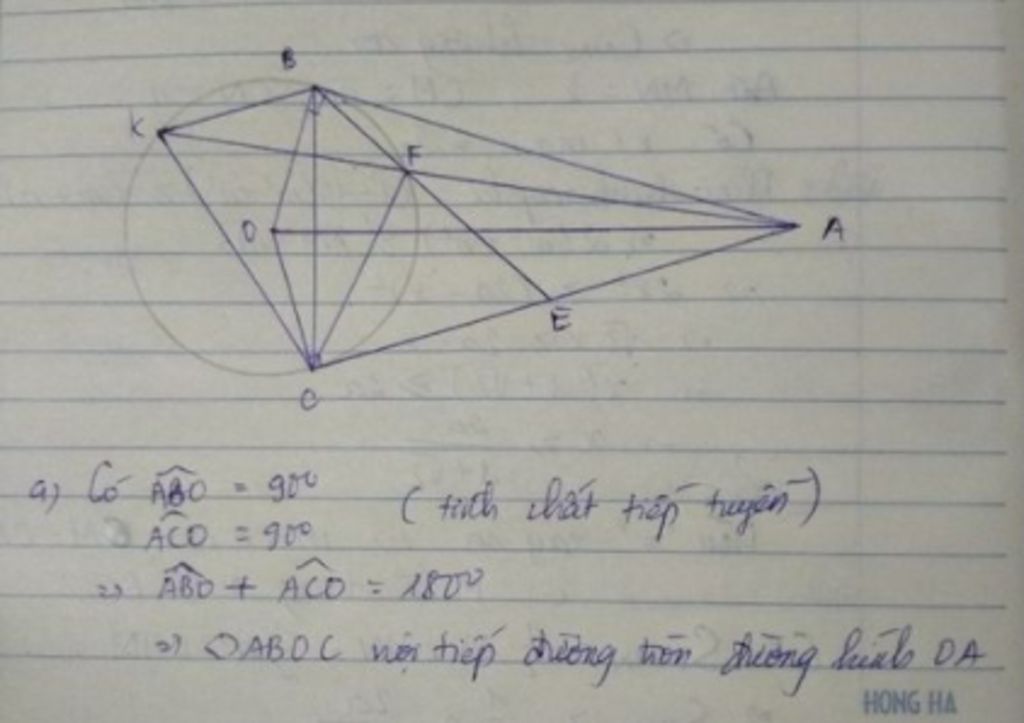 B
K
F
O
A
E
C
a) Có ABO = 90° (tính chất tiếp tuyến)
ACO = 90°
=> ABO + ACO = 180°
=> ◇ABOC nội tiếp đường tròn đường kính OA
HONG HA